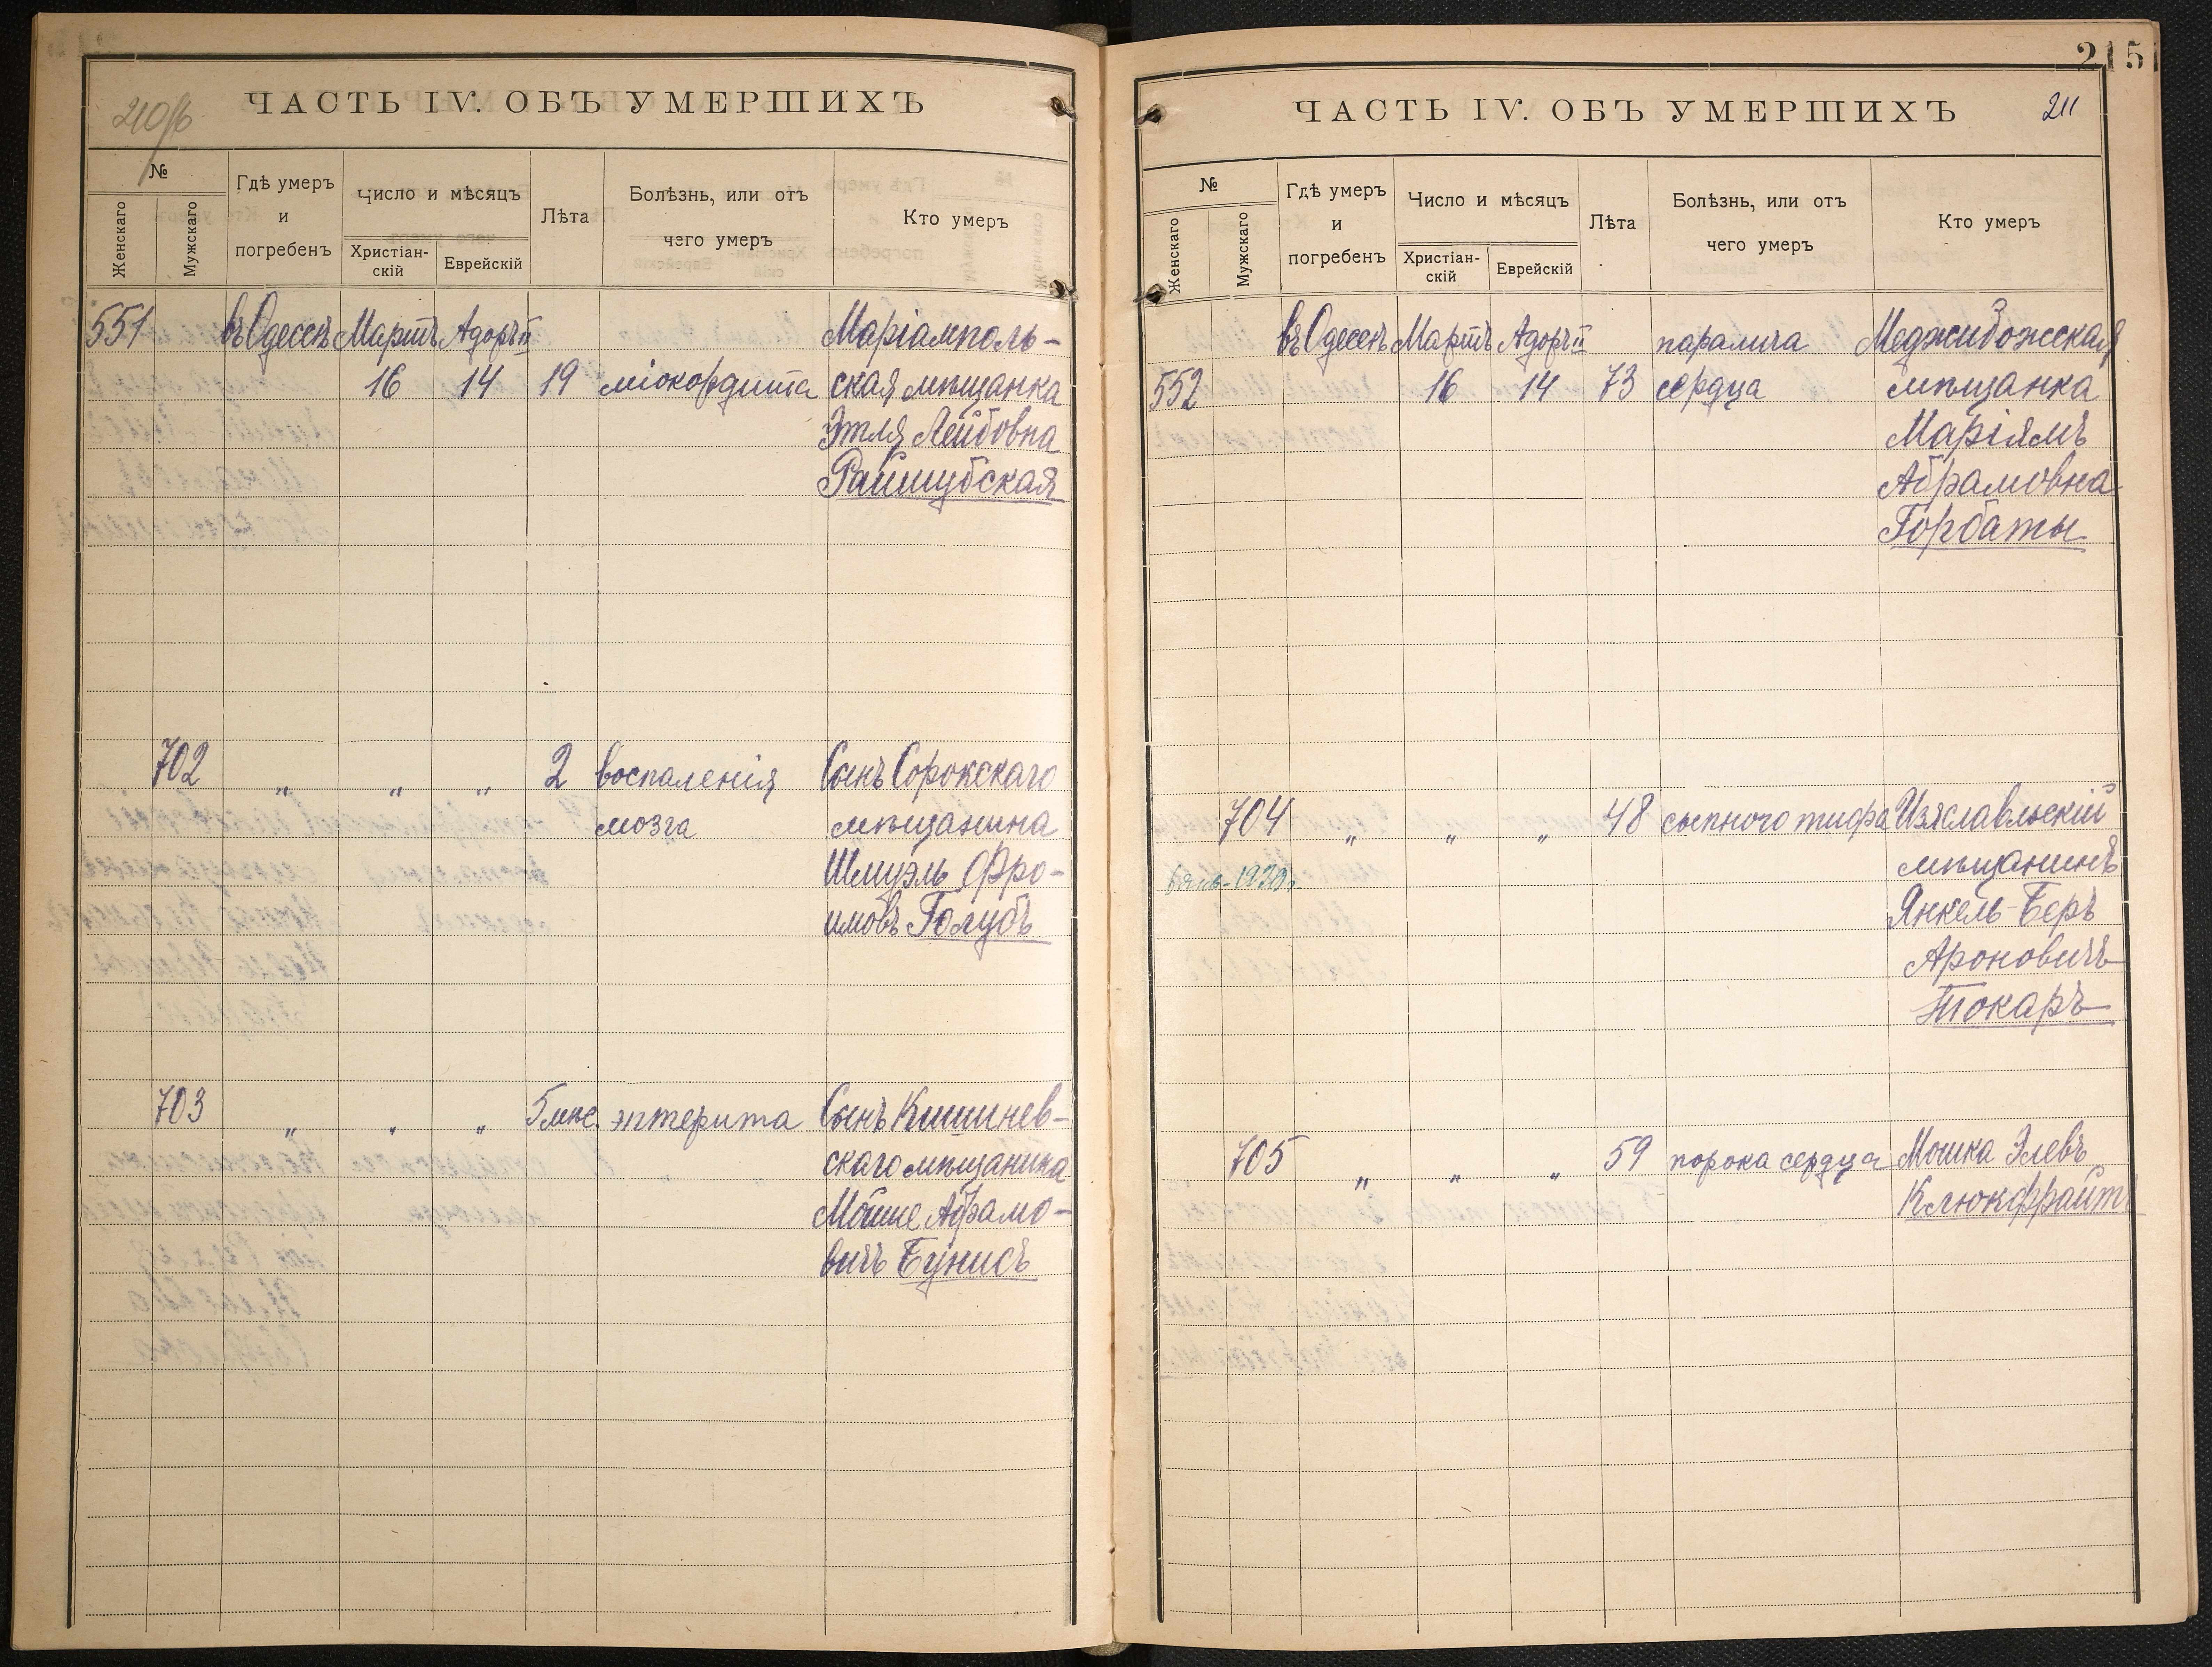 210об
ЧАСТЬ IV. ОБЪ УМЕРШИХЪ
№
Женскаго
Мужскаго
Гдѣ умеръ
и
погребенъ
Число и мѣсяцъ
Христіан-
скій
Еврейскій
Лѣта
Болѣзнь, или отъ
чего умеръ
Кто умеръ
551 въ Одессѣ Мартъ Адоръ II Маріамполь-
16 14 19 міокардита ская мѣщанка
Этля Лейбовна
Райшубская
702 „ „ „ 2 воспаленія Сынъ Сорокскаго
мозга мѣщанина
Шмуэль Фро-
имовъ Голубъ
703 „ „ „ 5 мѣс. энтерита Сынъ Кишинев-
скаго мѣщанина
Мойше Абрамо-
вичъ Бунисъ
215
ЧАСТЬ IV. ОБЪ УМЕРШИХЪ 211
№
Женскаго
Мужскаго
Гдѣ умеръ
и
погребенъ
Число и мѣсяцъ
Христіан-
скій
Еврейскій
Лѣта
Болѣзнь, или отъ
чего умеръ
Кто умеръ
въ Одессѣ Мартъ Адоръ II паралича Меджибожская
552 16 14 73 сердца мѣщанка
Маріямъ
Абрамовна
Горбаты
704 „ „ „ 48 сыпного тифа Изяславльскій
1920г. мѣщанинъ
Янкель-Беръ
Ароновичъ
Токаръ
705 „ „ „ 59 порока сердца Мошка Элевъ
Клюкфрайтъ